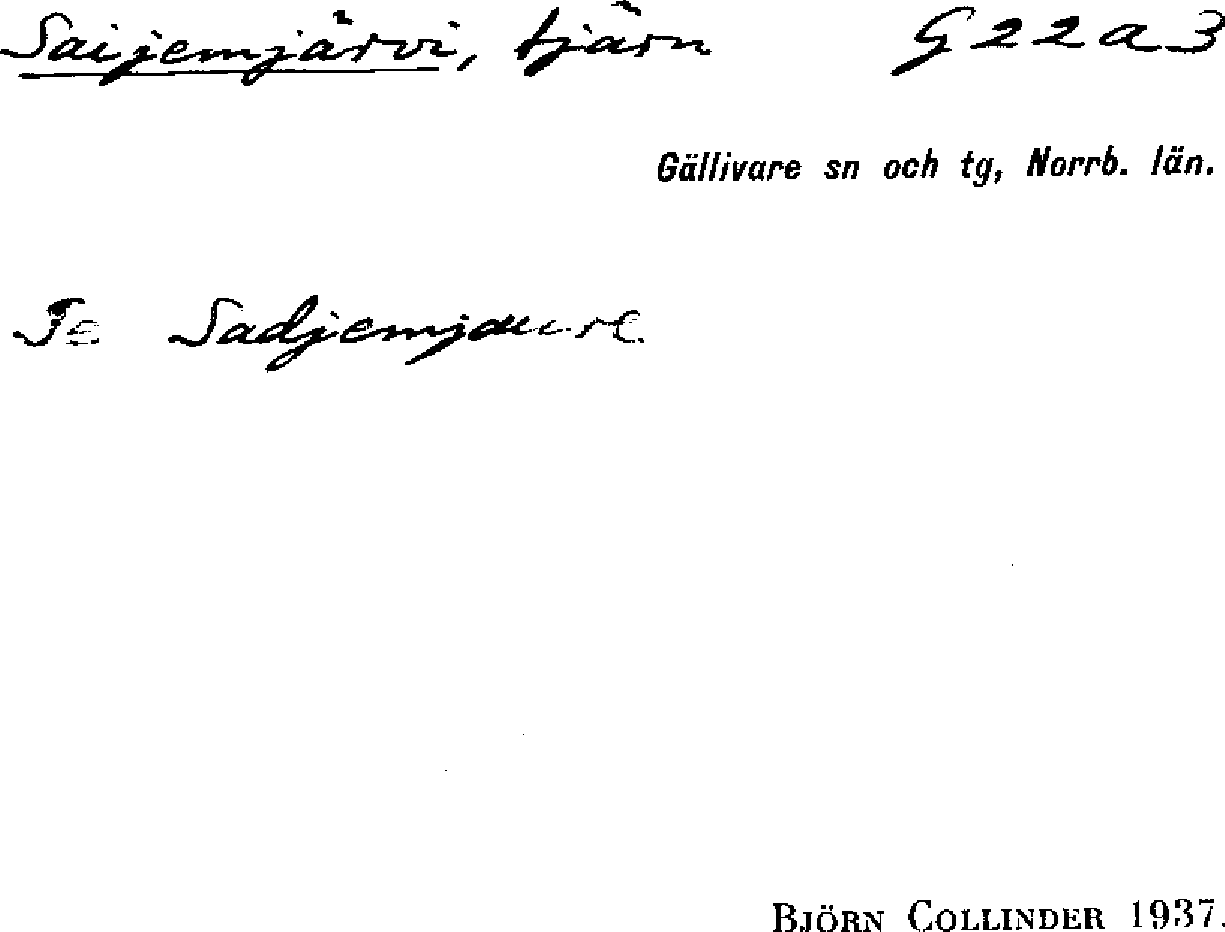 Saijemjärvi, tjärn G22a3
Gällivare sn och tg, Norrb. län.
Se Sadjemjaure.
BJÖRN COLLINDER 1937.